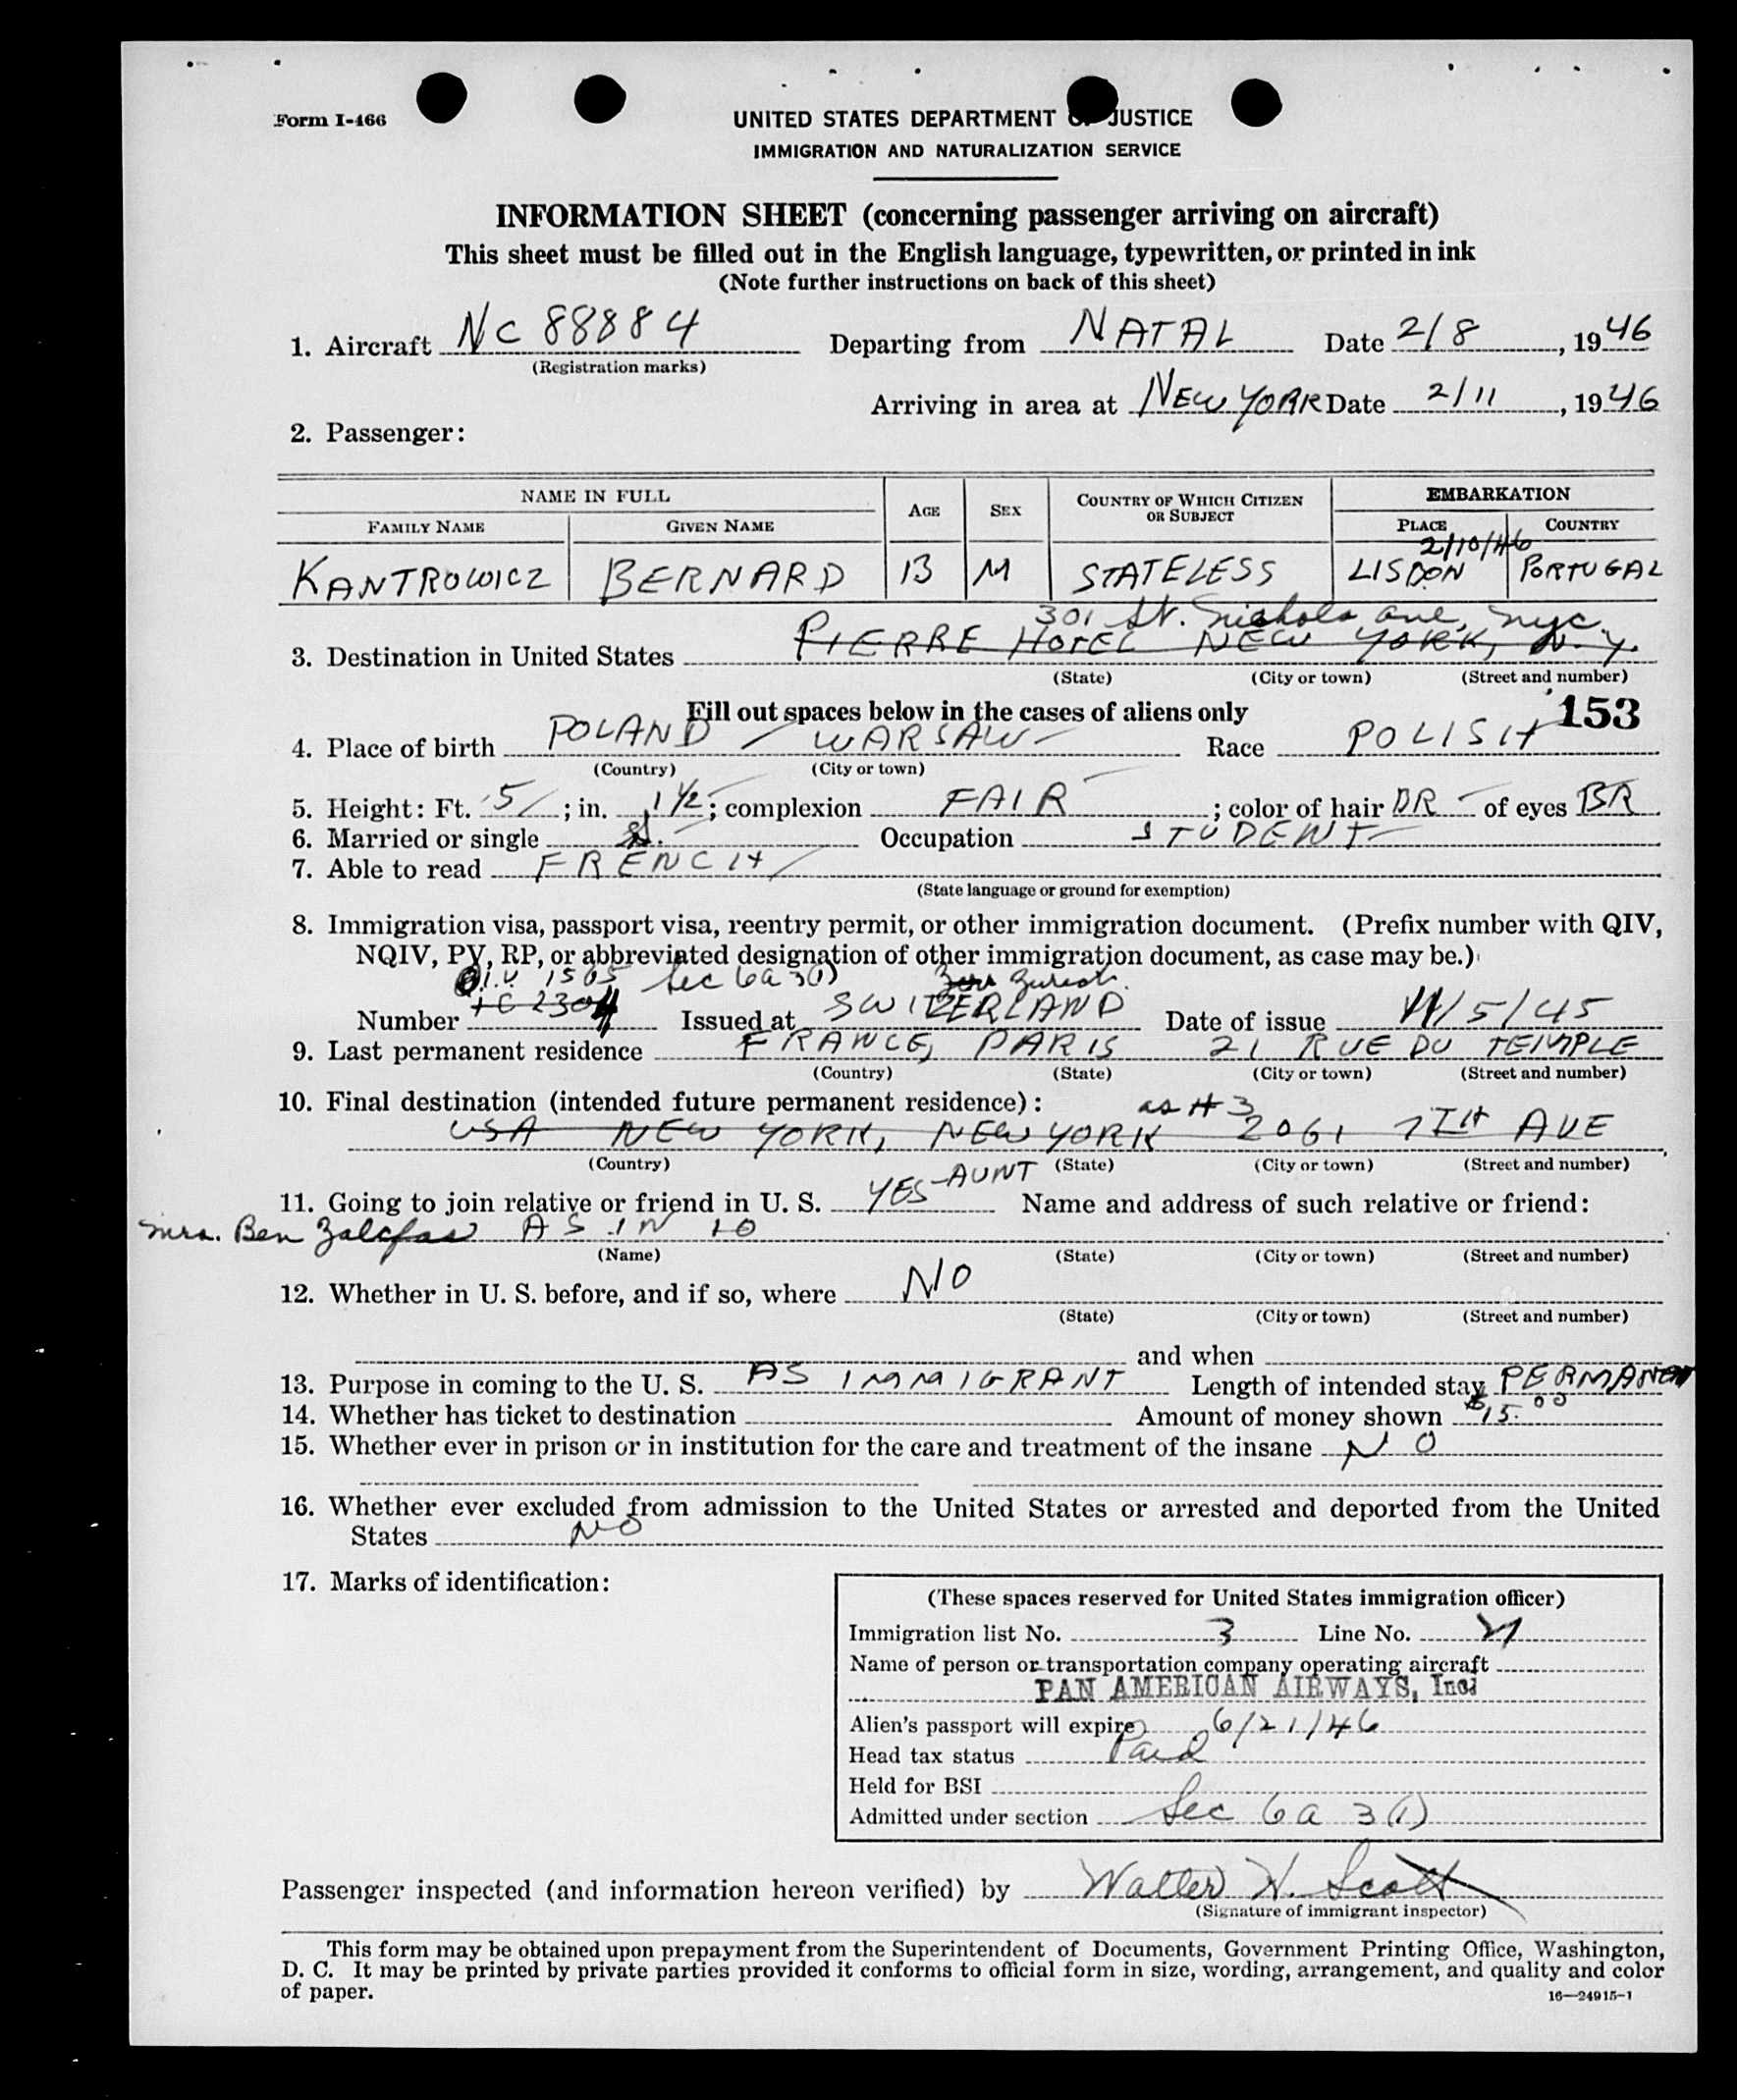 Form I-466
UNITED STATES DEPARTMENT OF JUSTICE
IMMIGRATION AND NATURALIZATION SERVICE
INFORMATION SHEET (concerning passenger arriving on aircraft)
This sheet must be filled out in the English language, typewritten, or printed in ink
(Note further instructions on back of this sheet)
1. Aircraft NC 88884 Departing from NATAL Date 2/8, 1946
(Registration marks)
Arriving in area at NEW YORK Date 2/11, 1946
2. Passenger:
NAME IN FULL AGE SEX COUNTRY OF WHICH CITIZEN OR SUBJECT EMBARKATION
FAMILY NAME GIVEN NAME PLACE COUNTRY
2/10/46
KANTROWICZ BERNARD 13 M STATELESS LISBON PORTUGAL
301 St. Nicholas ave, nyc.
3. Destination in United States PIERRE HOTEL NEW YORK, N.Y.
(State) (City or town) (Street and number)
Fill out spaces below in the cases of aliens only 153
4. Place of birth POLAND / WARSAW Race POLISH
(Country) (City or town)
5. Height: Ft. 5; in. 1 1/2; complexion FAIR; color of hair BR of eyes BR
6. Married or single S. Occupation STUDENT
7. Able to read FRENCH
(State language or ground for exemption)
8. Immigration visa, passport visa, reentry permit, or other immigration document. (Prefix number with QIV,
NQIV, PV, RP, or abbreviated designation of other immigration document, as case may be.)
Q.I.V. 1565 Sec 6a 3(1) Zurich
Number Issued at SWITZERLAND Date of issue 11/5/45
9. Last permanent residence FRANCE, PARIS 21 RUE DU TEMPLE
(Country) (State) (City or town) (Street and number)
10. Final destination (intended future permanent residence): as # 3
USA NEW YORK, NEW YORK 2061 7TH AVE
(Country) (State) (City or town) (Street and number)
11. Going to join relative or friend in U. S. YES-AUNT Name and address of such relative or friend:
Mrs. Ben Zalcfas AS IN 10
(Name) (State) (City or town) (Street and number)
12. Whether in U. S. before, and if so, where NO
(State) (City or town) (Street and number)
and when
13. Purpose in coming to the U. S. AS IMMIGRANT Length of intended stay PERMANENT
14. Whether has ticket to destination Amount of money shown $15.00
15. Whether ever in prison or in institution for the care and treatment of the insane NO
16. Whether ever excluded from admission to the United States or arrested and deported from the United
States NO
17. Marks of identification:
(These spaces reserved for United States immigration officer)
Immigration list No. 3 Line No. 21
Name of person or transportation company operating aircraft
PAN AMERICAN AIRWAYS, Inc.
Alien's passport will expire 6/21/46
Head tax status Paid
Held for BSI
Admitted under section Sec 6a 3(1)
Passenger inspected (and information hereon verified) by Walter H. Scott
(Signature of immigrant inspector)
This form may be obtained upon prepayment from the Superintendent of Documents, Government Printing Office, Washington,
D. C. It may be printed by private parties provided it conforms to official form in size, wording, arrangement, and quality and color
of paper.
16—24915-1